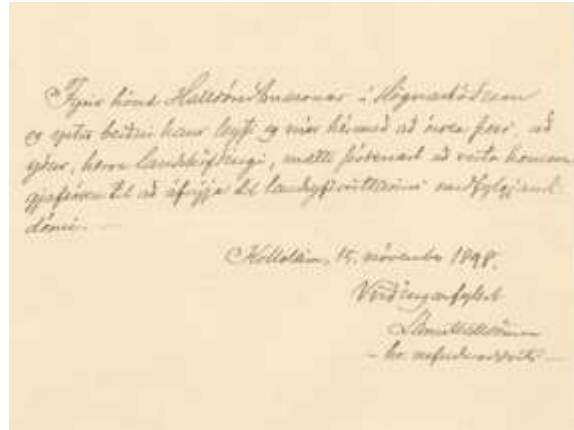 Fyrir hönd Halldórs Einarssonar á Rögnastöðum
og eptir beiðni hans leyfi eg mér hérmeð að óska þess, að
yður, herra landshöfðingi, mætti þóknast að veita honum
gjafsókn til að áfrýja til landsyfirréttarins meðfylgjandi
dómi.
15. nóvember 1898.
Virðingarfyllst